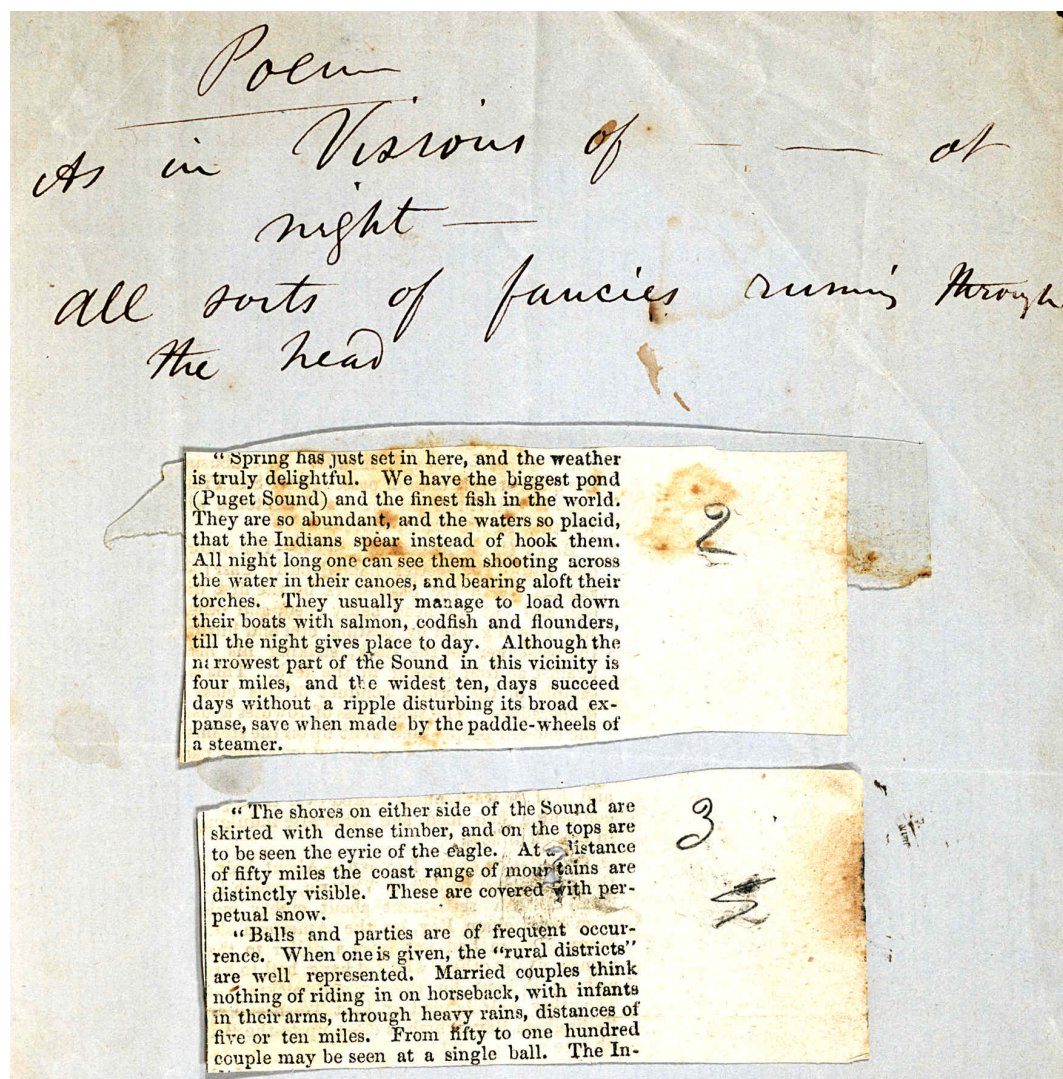 Poem
As in Visions of — — at
night —
All sorts of fancies runing through
the head
“Spring has just set in here, and the weather
is truly delightful. We have the biggest pond
(Puget Sound) and the finest fish in the world.
They are so abundant, and the waters so placid,
that the Indians spear instead of hook them.
All night long one can see them shooting across
the water in their canoes, and bearing aloft their
torches. They usually manage to load down
their boats with salmon, codfish and flounders,
till the night gives place to day. Although the
narrowest part of the Sound in this vicinity is
four miles, and the widest ten, days succeed
days without a ripple disturbing its broad ex-
panse, save when made by the paddle-wheels of
a steamer.
2
“The shores on either side of the Sound are
skirted with dense timber, and on the tops are
to be seen the eyrie of the eagle. At a distance
of fifty miles the coast range of mountains are
distinctly visible. These are covered with per-
petual snow.
“Balls and parties are of frequent occur-
rence. When one is given, the “rural districts”
are well represented. Married couples think
nothing of riding in on horseback, with infants
in their arms, through heavy rains, distances of
five or ten miles. From fifty to one hundred
couple may be seen at a single ball. The In-
3